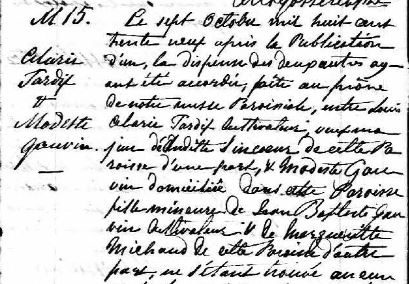 M 15.
Clarie
Tardif
&
Modeste
Gauvin.
Le sept octobre mil huit cent
trente neuf après la Publication
d'un, la dispense des deux autres ay-
ant été accordée, faite au prône
de notre messe Paroissiale, entre Louis
Olarie Tardif Cultivateur, veuf ma-
jeur de Juditte Sincœur de cette Pa-
roisse d'une part, & Modeste Gau-
vin domiciliée dans cette Paroisse
fille mineure de Jean Baptiste Gau-
vin Cultivateur & de Margueritte
Michaud de cette Paroisse d'autre
part, ne s'étant trouvé aucun